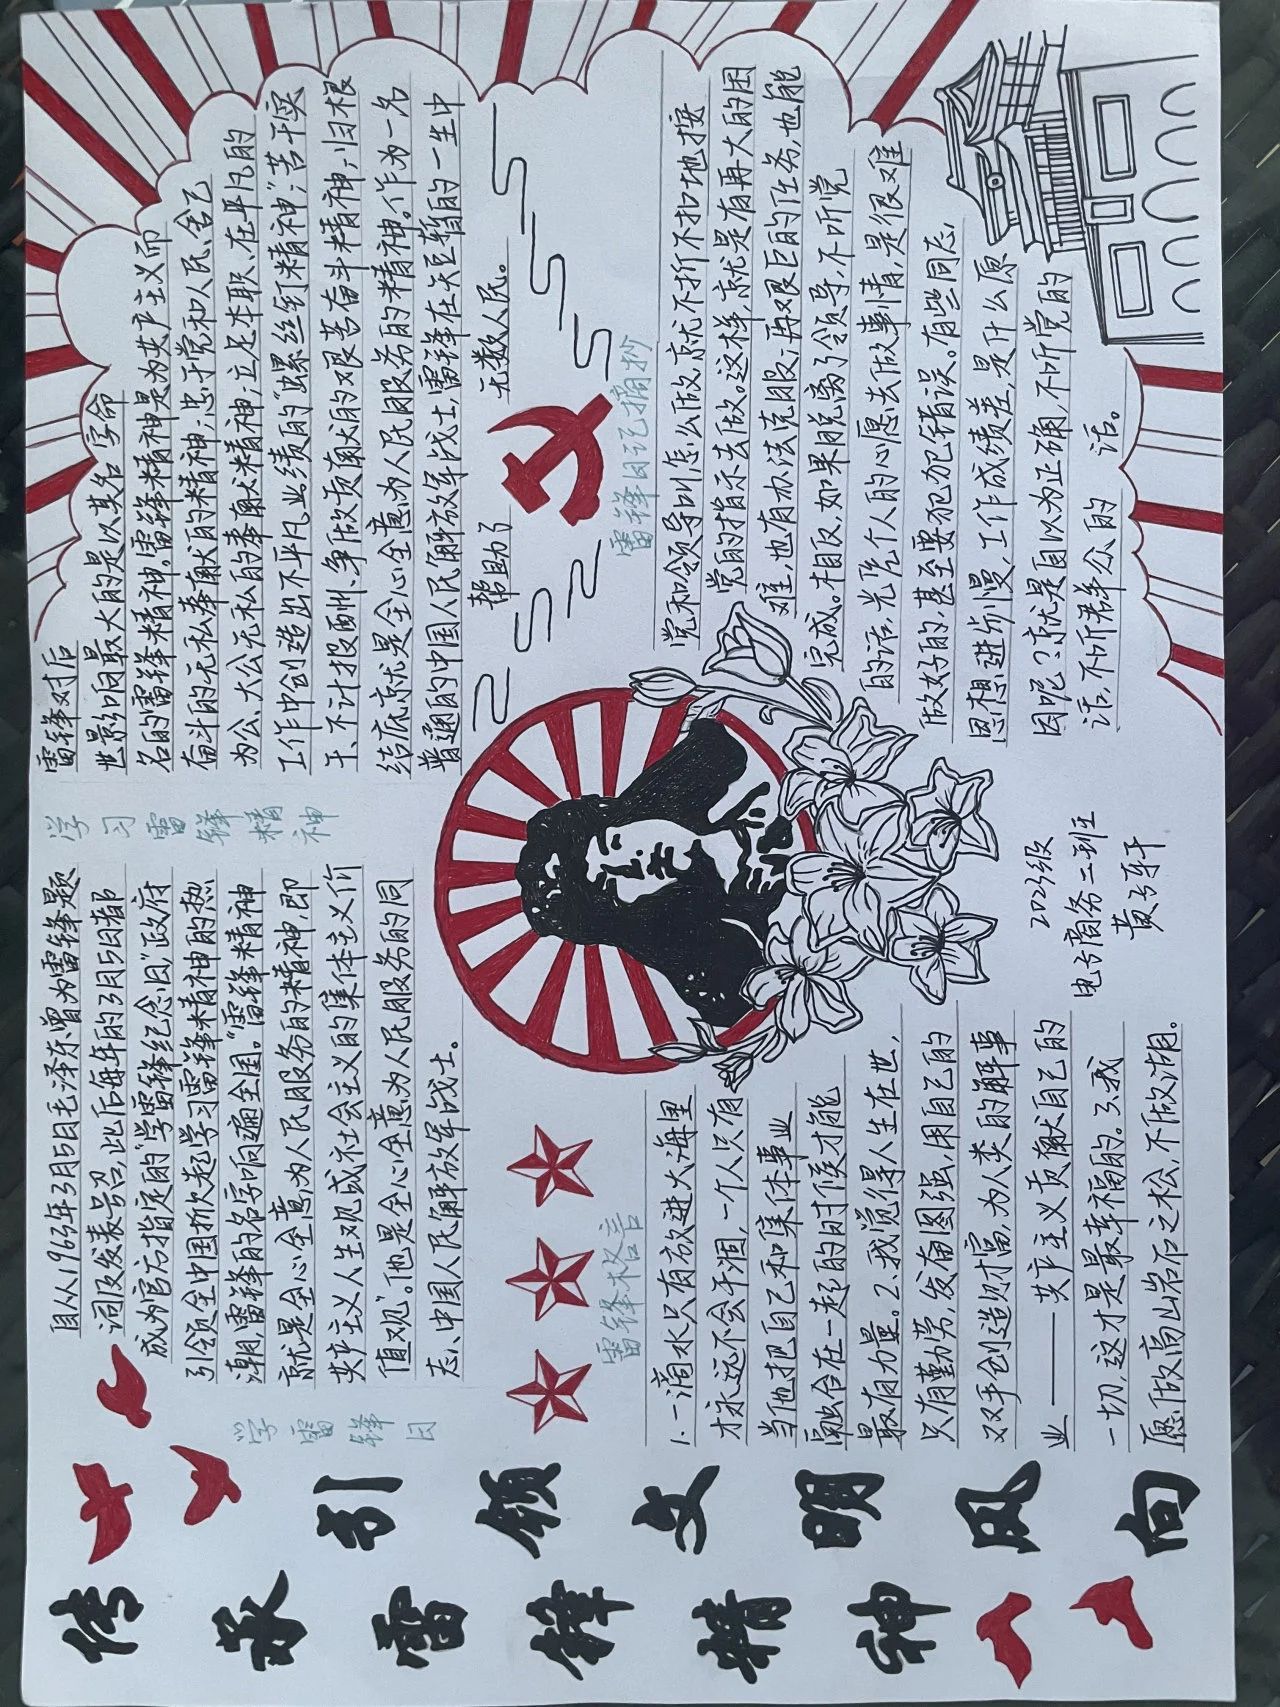 传承雷锋精神
引领文明风向
学雷锋日
自从1963年3月5日毛泽东曾为雷锋题
词及发表号召,此后每年的3月5日都
成为官方指定的"学雷锋纪念日"政府
引领全中国掀次起学习雷锋精神的热
潮,雷锋的名字响遍全国。"雷锋精神
就是全心全意,为人民服务的精神,即
共产主义人生观或社会主义的集体主义价
值观"。他是全心全意为人民服务的同
志、中国人民解放军战士。
学习雷锋精神
雷锋对后
世影响最大的是以其名字命
名的雷锋精神。雷锋精神是为共产主义而
奋斗的无私奉献的精神;忠于党和人民、舍己
为公、大公无私的奉献精神;立足本职、在平凡的
工作中创造出不平凡业绩的"螺丝钉精神";苦干实
干、不计报酬、争做贡献的艰苦奋斗精神;归根
结底就是全心全意为人民服务的精神。作为一名
普通的中国人民解放军战士,雷锋在矢巨暂的一生中
帮助了
无数人民。
雷锋格言
1.一滴水只有放进大海里
才永远不会干涸,一个人只有
当他把自己和集体事业
融合在一起的时候才能
最有力量。2、我觉得人生在世,
只有勤劳,发奋图强,用自己的
双手创造财富,为人类的解事
业————共产主义贡献自己的
一切,这才是最幸福的。3、我
愿做高山岩石之松,不做湖。
雷锋日记摘抄
党和领导叫怎么做,就不折不扣地按
党的指示去做。这样就是有再大的困
难,也有办法克服;再艰巨的任务,也能
完成。相反,如果脱离了领导,不听党
的话,光凭个人的心愿去做事情,是很难
做好的,甚至要犯犯错误。有些同志,
思想进步慢,工作成绩差,是什么原
因呢?就是自以为正确,不听党的
话,不听群众的话。
2023级
电子商务二班
黄子轩